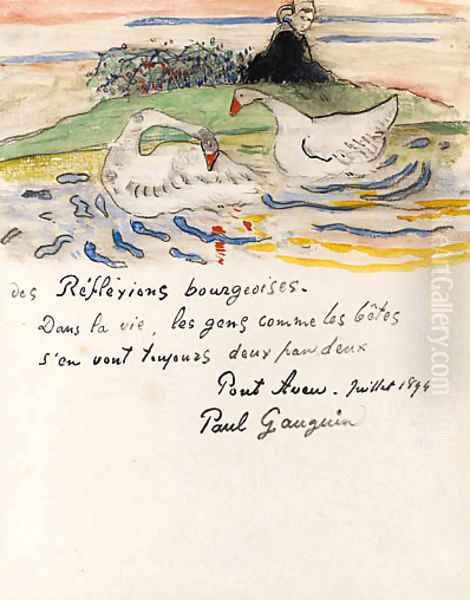 des Réflexions bourgeoises.
Dans la vie, les gens comme les bêtes
s'en vont toujours deux par deux
Pont Aven. Juillet 1894
Paul Gauguin